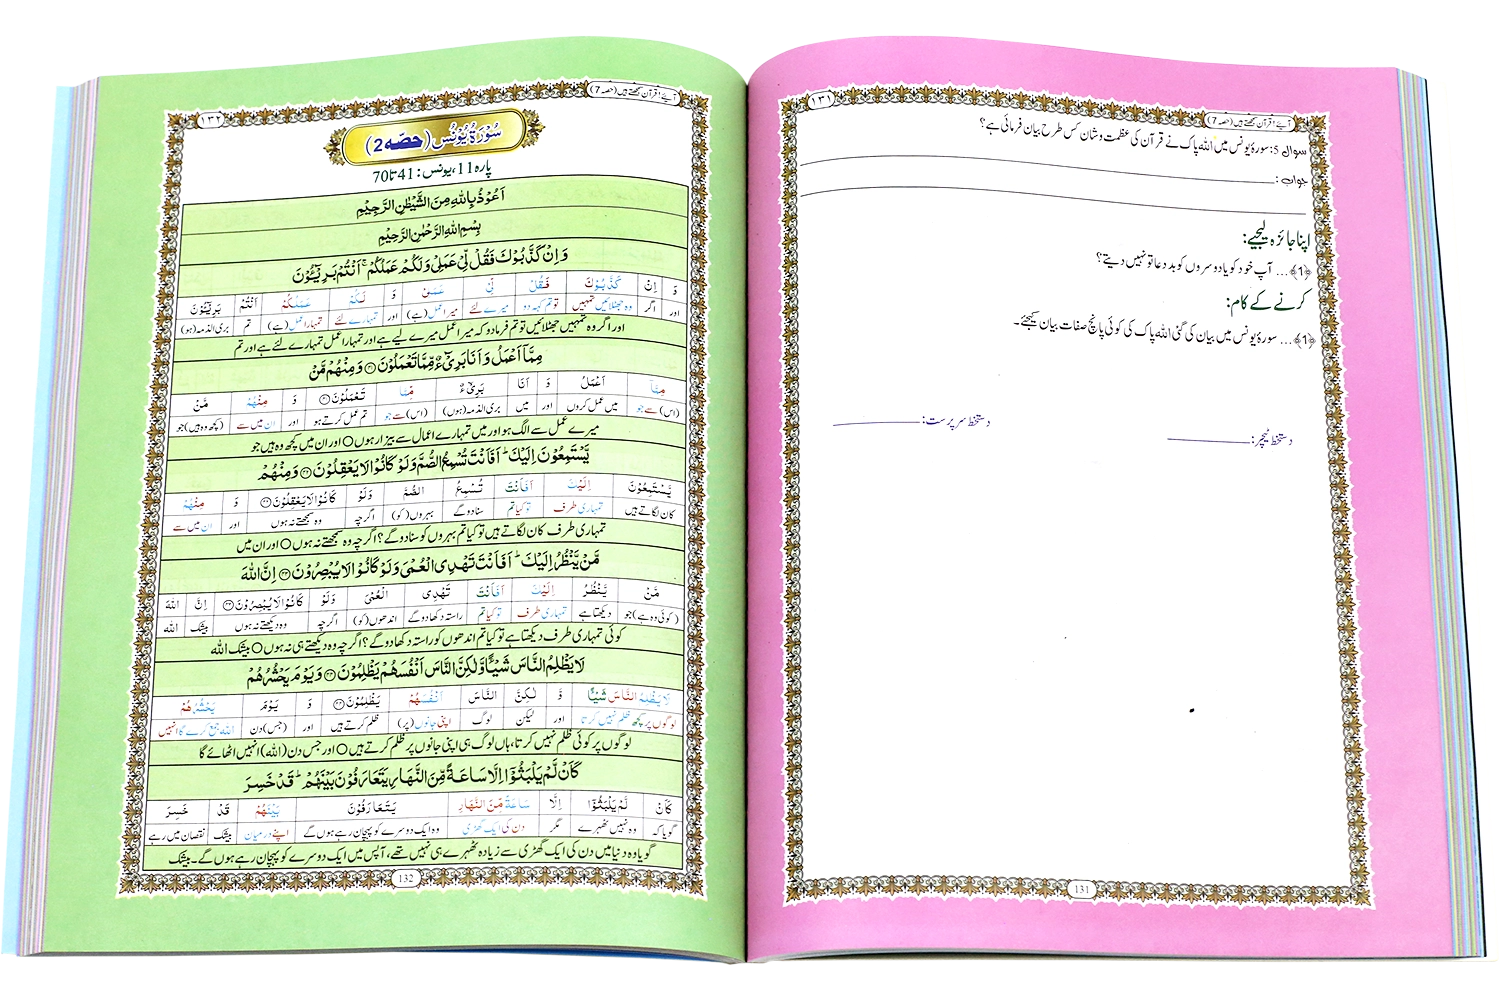 ۱۳۱
آیئے! قرآن سمجھتے ہیں (حصہ 7)
سوال 5: سورۂ یونس میں اللہ پاک نے قرآن کی عظمت و شان کس طرح بیان فرمائی ہے؟
جواب:
اپنا جائزہ لیجیے:
﴿1﴾... آپ خود کو یا دوسروں کو بددعا تو نہیں دیتے؟
کرنے کے کام:
﴿1﴾... سورۂ یونس میں بیان کی گئی اللہ پاک کی کوئی پانچ صفات بیان کیجئے۔
دستخط سرپرست:
دستخط ٹیچر:
131
آیئے! قرآن سمجھتے ہیں (حصہ 7)
۱۳۲
سُوْرَۃُ یُوْنُس (حصّہ 2)
پارہ 11، یونس: 41 تا 70
اَعُوْذُ بِاللّٰہِ مِنَ الشَّیْطٰنِ الرَّجِیْمِ
بِسْمِ اللّٰہِ الرَّحْمٰنِ الرَّحِیْمِ
وَ اِنْ كَذَّبُوْكَ فَقُلْ لِّیْ عَمَلِیْ وَ لَكُمْ عَمَلُكُمْۚ اَنْتُمْ بَرِیْٓــٴُـوْنَ
وَ اِنْ كَذَّبُوْكَ فَقُلْ لِّیْ عَمَلِیْ وَ لَكُمْ عَمَلُكُمْ اَنْتُمْ بَرِیْٓــٴُـوْنَ
اور اگر وہ جھٹلائیں تمہیں تو تم کہہ دو میرے لئے میرا عمل (ہے) اور تمہارے لئے تمہارا عمل (ہے) تم بری الذمہ (ہو)
اور اگر وہ تمہیں جھٹلائیں تو تم فرمادو کہ میرا عمل میرے لیے ہے اور تمہارا عمل تمہارے لئے ہے اور تم
مِمَّاۤ اَعْمَلُ وَ اَنَا بَرِیْٓءٌ مِّمَّا تَعْمَلُوْنَ۝۴۱ وَ مِنْهُمْ مَّنْ
مِمَّاۤ اَعْمَلُ وَ اَنَا بَرِیْٓءٌ مِّمَّا تَعْمَلُوْنَ۝۴۱ وَ مِنْهُمْ مَّنْ
(اس) سے جو میں عمل کروں اور میں بری الذمہ (ہوں) (اس) سے جو تم عمل کرتے ہو اور ان میں سے (کچھ وہ ہیں) جو
میرے عمل سے الگ ہو اور میں تمہارے اعمال سے بیزار ہوں ○ اور ان میں کچھ وہ ہیں جو
یَّسْتَمِعُوْنَ اِلَیْكَؕ اَفَاَنْتَ تُسْمِعُ الصُّمَّ وَ لَوْ كَانُوْا لَا یَعْقِلُوْنَ۝۴۲ وَ مِنْهُمْ
یَّسْتَمِعُوْنَ اِلَیْكَ اَفَاَنْتَ تُسْمِعُ الصُّمَّ وَ لَوْ كَانُوْا لَا یَعْقِلُوْنَ۝۴۲ وَ مِنْهُمْ
کان لگاتے ہیں تمہاری طرف تو کیا تم سنادو گے بہروں (کو) اگرچہ وہ سمجھتے نہ ہوں اور ان میں سے
تمہاری طرف کان لگاتے ہیں تو کیا تم بہروں کو سنا دو گے؟ اگرچہ وہ سمجھتے نہ ہوں ○ اور ان میں
مَّنْ یَّنْظُرُ اِلَیْكَؕ اَفَاَنْتَ تَهْدِی الْعُمْیَ وَ لَوْ كَانُوْا لَا یُبْصِرُوْنَ۝۴۳ اِنَّ اللّٰهَ
مَّنْ یَّنْظُرُ اِلَیْكَ اَفَاَنْتَ تَهْدِی الْعُمْیَ وَ لَوْ كَانُوْا لَا یُبْصِرُوْنَ۝۴۳ اِنَّ اللّٰهَ
(کوئی وہ ہے) جو دیکھتا ہے تمہاری طرف تو کیا تم راستہ دکھادو گے اندھوں (کو) اگرچہ وہ دیکھتے نہ ہوں بیشک اللہ
کوئی تمہاری طرف دیکھتا ہے تو کیا تم اندھوں کو راستہ دکھا دو گے؟ اگرچہ وہ دیکھتے ہی نہ ہوں ○ بیشک اللہ
لَا یَظْلِمُ النَّاسَ شَیْــٴًـا وَّ لٰكِنَّ النَّاسَ اَنْفُسَهُمْ یَظْلِمُوْنَ۝۴۴ وَ یَوْمَ یَحْشُرُهُمْ
لَا یَظْلِمُ النَّاسَ شَیْــٴًـا وَّ لٰكِنَّ النَّاسَ اَنْفُسَهُمْ یَظْلِمُوْنَ۝۴۴ وَ یَوْمَ یَحْشُرُهُمْ
لوگوں پر کچھ ظلم نہیں کرتا اور لیکن لوگ اپنی جانوں (پر) ظلم کرتے ہیں اور (جس) دن اللہ جمع کرے گا انہیں
لوگوں پر کوئی ظلم نہیں کرتا، ہاں لوگ ہی اپنی جانوں پر ظلم کرتے ہیں ○ اور جس دن (اللہ) انہیں اٹھائے گا
كَاَنْ لَّمْ یَلْبَثُوْۤا اِلَّا سَاعَةً مِّنَ النَّهَارِ یَتَعَارَفُوْنَ بَیْنَهُمْؕ قَدْ خَسِرَ
كَاَنْ لَّمْ یَلْبَثُوْۤا اِلَّا سَاعَةً مِّنَ النَّهَارِ یَتَعَارَفُوْنَ بَیْنَهُمْ قَدْ خَسِرَ
گویا کہ وہ نہیں ٹھہرے مگر دن کی ایک گھڑی وہ ایک دوسرے کو پہچان رہے ہوں گے اپنے درمیان بیشک نقصان میں رہے
گویا وہ دنیا میں دن کی ایک گھڑی سے زیادہ ٹھہرے ہی نہیں تھے، آپس میں ایک دوسرے کو پہچان رہے ہوں گے۔ بیشک
132